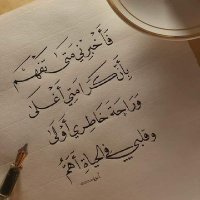 فَأَخْبِرْنِي مَتَىٰ تَفْهَمْ
بِأَنَّ كَرَامَتِي أَغْلَىٰ
وَرَاحَةَ خَاطِرِي أَوْلَىٰ
وَقَلْبِي فِي الْحَيَاةِ أَهَمُّ